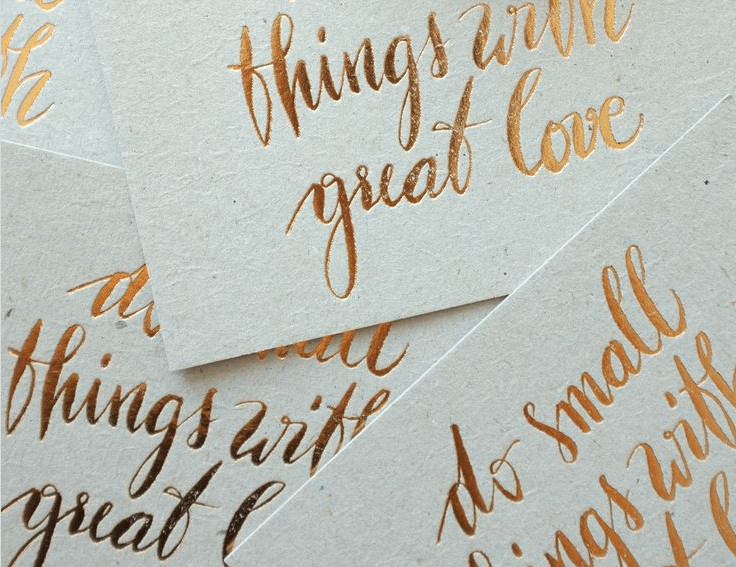 th
things with
great love
do small
things with
great l
do small
things with